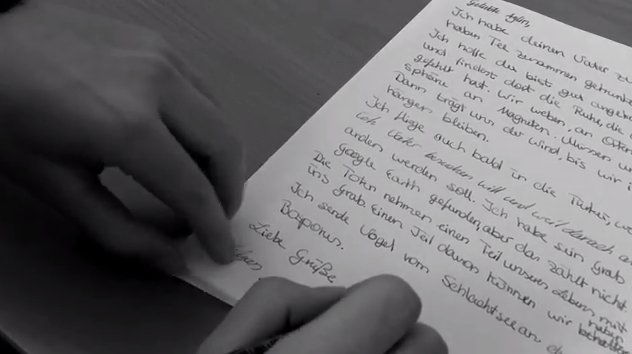 Geliebte Aylin,
Ich habe deinen Vater zu
haben Tee zusammen getrunken
Ich hoffe du bist gut
und findest dort die Ruhe, die
gefehlt hat. Wir weben, an
sphäre an Magneten. Wurzeln und
Dann trägt uns der Wind, bis wir
hängen bleiben.
Ich fliege auch bald in die Türkei,
ich Vater besuchen will und weil danach
anders werden soll. Ich habe sein Grab
Google Earth gefunden, aber das zählt nicht.
Die Toten nehmen einen Teil unseres Lebens mit
ins Grab. Einen Teil davon können wir behalten
Ich sende Vögel vom Schlachtensee an
Bosporus.
Liebe Grüße